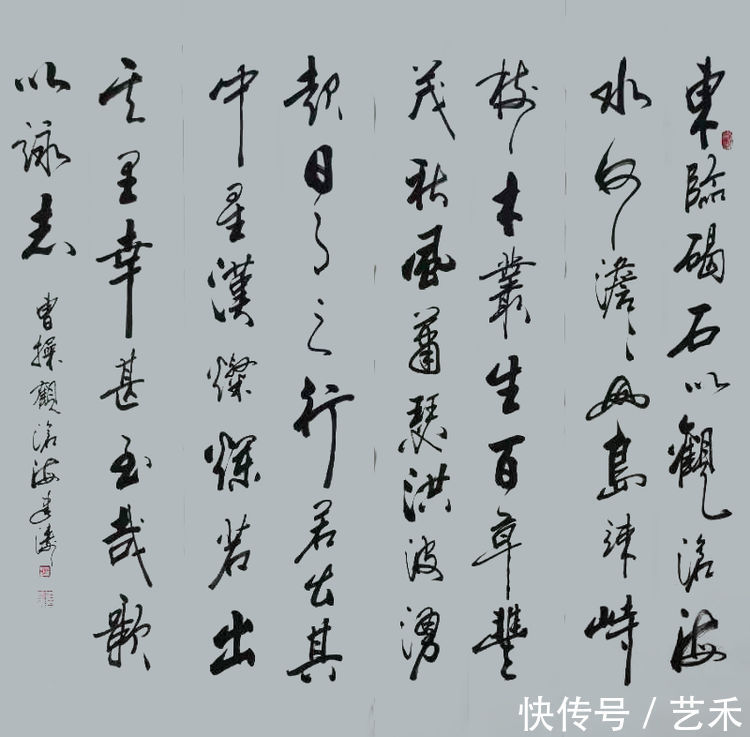 東臨碣石以觀滄海
水何澹々山島竦峙
樹木叢生百草豐
茂秋風蕭瑟洪波湧
起日月之行若出其
中星漢燦爛若出
其里幸甚至哉歌
以詠志
曹操觀滄海
快传号 / 艺禾